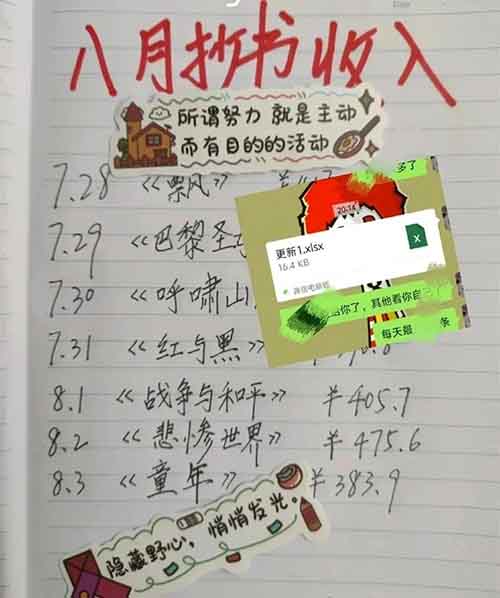 八月抄书收入
所谓努力 就是主动
而有目的的活动
7.28 《飘》
多了
7.29 《巴黎圣
20:14
更新1.xlsx
16.4 KB
X
微信电脑版
7.30 《呼啸山
给你了，其他看你自
每天最 条
7.31 《红与黑》
8.1 《战争与和平》 ¥405.7
8.2 《悲惨世界》 ¥475.6
8.3 《童年》 ¥383.9
隐藏野心，悄悄发光。